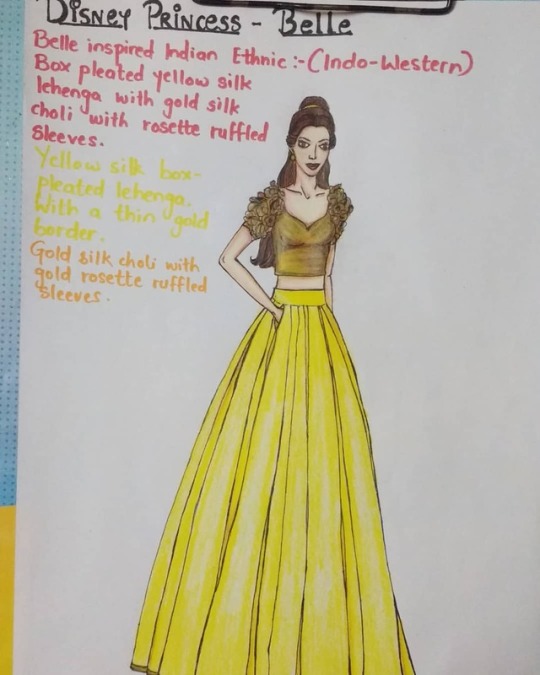 Disney Princess - Belle
Belle inspired Indian Ethnic :- (Indo-Western)
Box pleated yellow silk
lehenga with gold silk
choli with rosette ruffled
sleeves.
Yellow silk box-
pleated lehenga.
With a thin gold
border.
Gold silk choli with
gold rosette ruffled
sleeves.